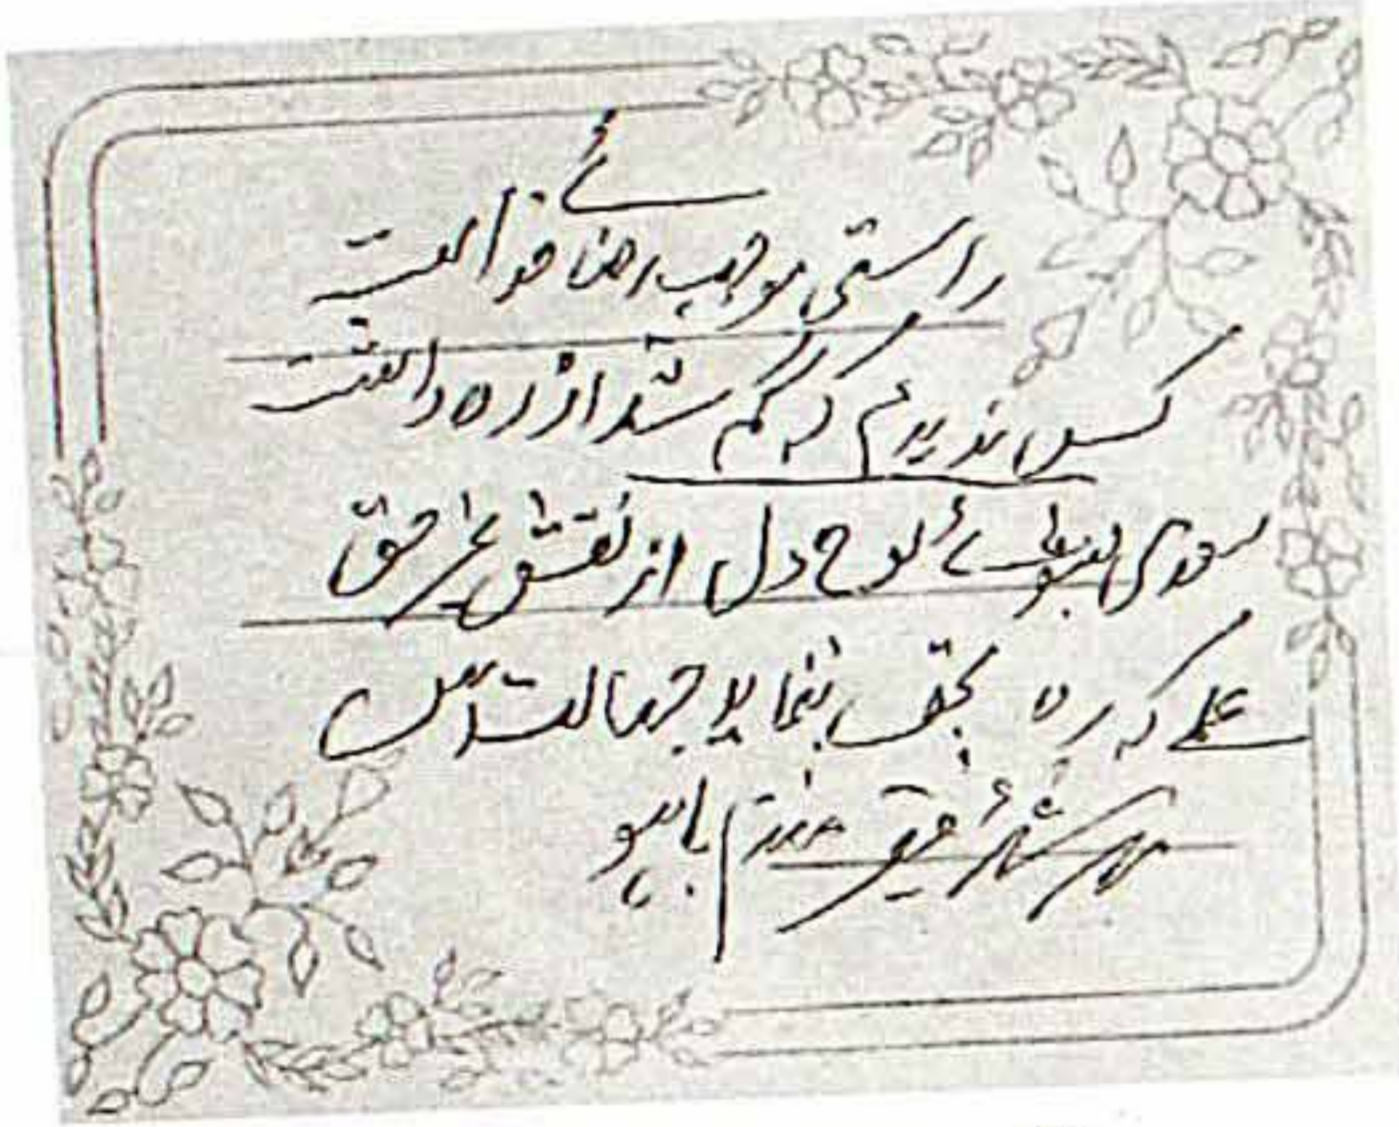 راستی موجب رضائے خداست
کس ندیدم کہ گم شد از رہ راست
سعدی بشوئے لوح دل از نقش غیر حق
علمے کہ رہ بحق ننماید جہالت است